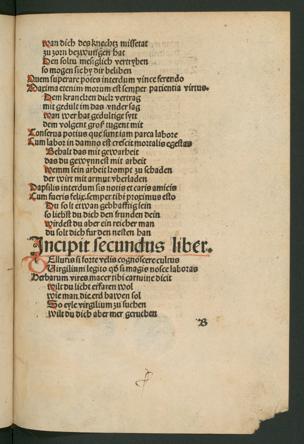 wan dich des knechtz missetat
zu zorn bezwungen hat
Den soltu messiglich vertryben
so mogen sie by dir beliben
Quem superare potes interdum vince ferendo
Maxima etenim morum est semper patientia virtus.
Dem krancken dick vertrag
mit gedult im das under sag
wan wer hat gedultige sytt
dem volgent groß tugent mit
Conserva potius que sunt iam parca labore
Cum labor in damno est crescit mortalis egestas
Behalt das mit gewarheit
das du gewynnest mit arbeit
wem sein arbeit kompt zu schaden
der wirt mit armut uberladen
Dapsilis interdum sis notis et caris amicis
Cum fueris felix semper tibi proximus esto
Du solt etwan gebhafftig sein
so liebst du dich den frunden dein
wirdest du aber ein reicher man
du solt dich fur den nesten han
Incipit secundus liber.
Telluris si forte velis cognoscere cultus
Virgilium legito qd si magis nosce laboras
Herbarum vires macer tibi carmine dicit
wilt du licht erfaren wol
wie man die erd bawen sol
So eyle virgilium zu suchen
wilt du dich aber mer geruchen
B